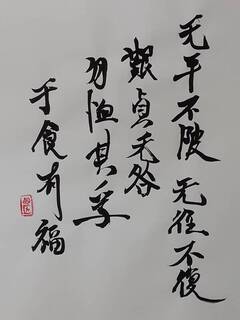 无平不陂 无往不復
艱貞无咎
勿恤其孚
于食有福